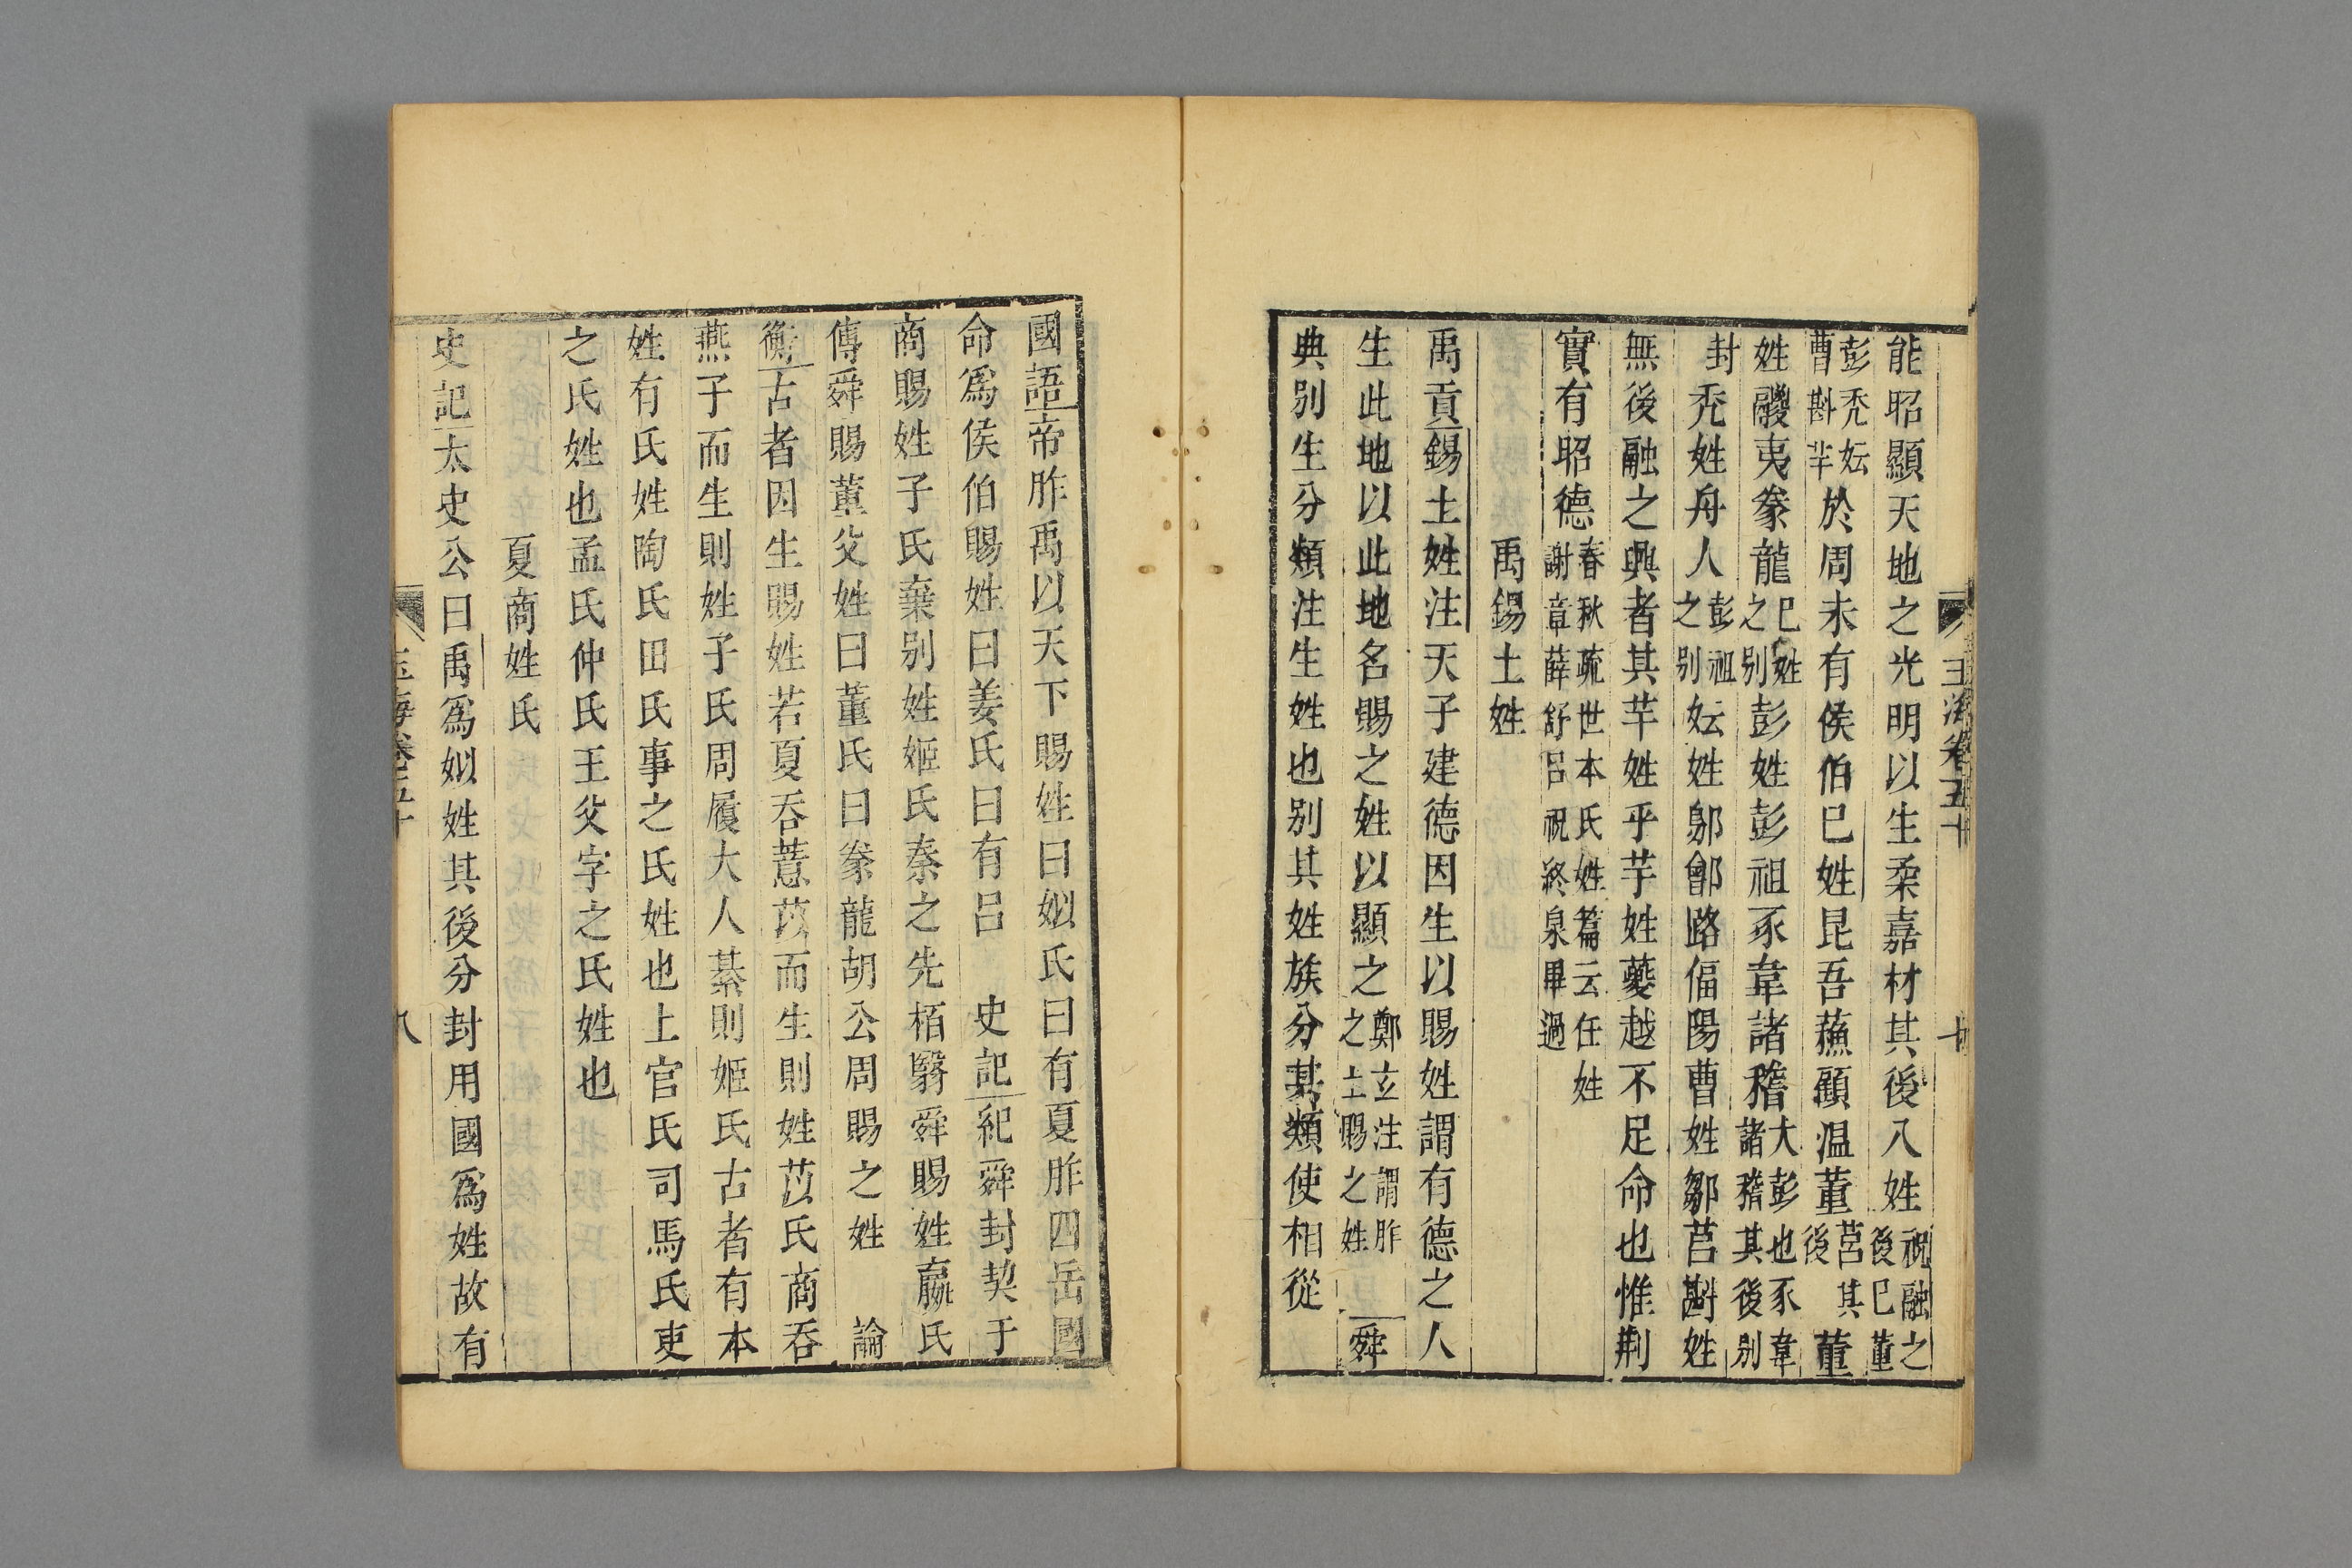 玉海卷五十
能昭顯天地之光明以生柔嘉材其後八姓祝融之後巳董
彭禿妘曹斟羋於周未有侯伯巳姓昆吾蘓顧温董莒其後董
姓鬷夷豢龍巳姓之别彭姓彭祖豕韋諸稽大彭也豕韋諸稽其後别
封禿姓舟人彭祖之别妘姓鄔鄶路偪陽曹姓鄒莒斟姓
無後融之興者其芊姓乎芊姓夔越不足命也惟荆
實有昭德春秋疏世本氏姓篇云任姓謝章薛舒吕祝終泉畢過
禹錫土姓
禹貢錫土姓注天子建德因生以賜姓謂有德之人
生此地以此地名賜之姓以顯之鄭玄注謂胙之土賜之姓舜
典别生分類注生姓也别其姓族分其類使相從
國語帝胙禹以天下賜姓曰姒氏曰有夏胙四岳國
命爲侯伯賜姓曰姜氏曰有吕 史記紀舜封契于
商賜姓子氏棄别姓姬氏秦之先栢翳舜賜姓嬴氏
傳舜賜董父姓曰董氏曰豢龍胡公周賜之姓 論
衡古者因生賜姓若夏吞薏苡而生則姓苡氏商吞
燕子而生則姓子氏周履大人綦則姬氏古者有本
姓有氏姓陶氏田氏事之氏姓也上官氏司馬氏吏
之氏姓也孟氏仲氏王父字之氏姓也
夏商姓氏
史記太史公曰禹爲姒姓其後分封用國爲姓故有
八